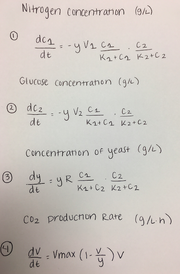 Nitrogen concentration (g/L)
① dC₁/dt = -y V₁ C₁/(K₁+C₁) · C₂/(K₂+C₂)
Glucose concentration (g/L)
② dC₂/dt = -y V₂ C₁/(K₁+C₁) · C₂/(K₂+C₂)
Concentration of yeast (g/L)
③ dy/dt = y R C₁/(K₁+C₂) · C₂/(K₂+C₂)
CO₂ production Rate (g/L·h)
④ dv/dt = Vmax (1 - v/y) V